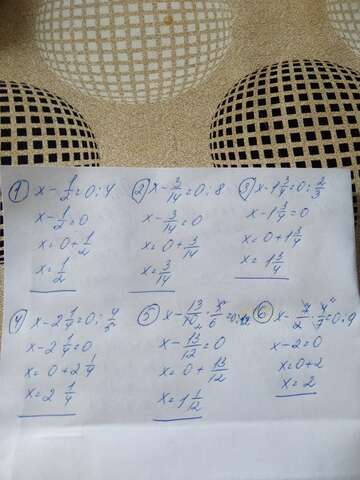 1) x - 1/2 = 0 : 4
x - 1/2 = 0
x = 0 + 1/2
x = 1/2
2) x - 3/14 = 0 : 8
x - 3/14 = 0
x = 0 + 3/14
x = 3/14
3) x - 1 3/4 = 0 : 2/3
x - 1 3/4 = 0
x = 0 + 1 3/4
x = 1 3/4
4) x - 2 1/4 = 0 : 4/5
x - 2 1/4 = 0
x = 0 + 2 1/4
x = 2 1/4
5) x - 13/10 · 5/6 = 0 : 12
x - 13/12 = 0
x = 0 + 13/12
x = 1 1/12
6) x - 7/2 · 4/7 = 0 · 9
x - 2 = 0
x = 0 + 2
x = 2